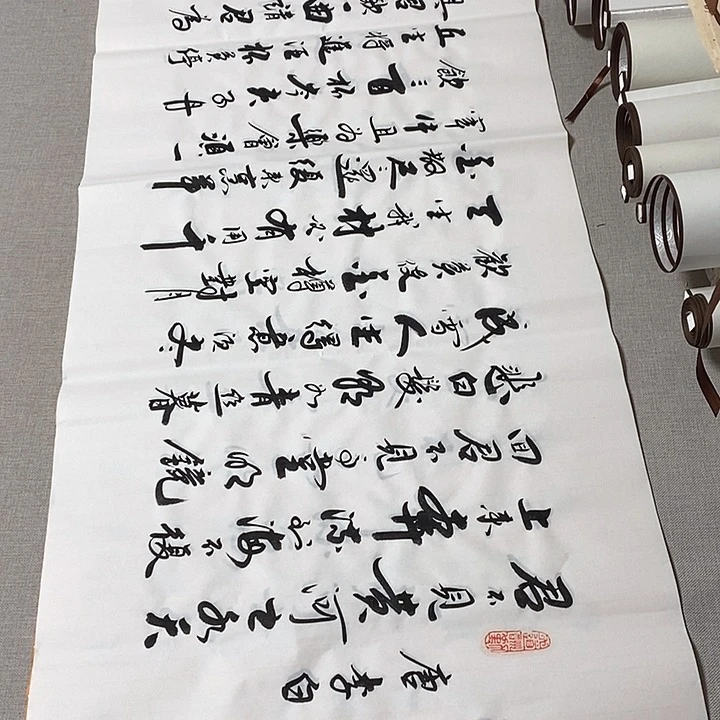 唐李白
君不見黃河之水天
上來奔流到海不復
回君不見高堂明鏡
悲白髮朝如青絲暮
成雪人生得意須盡
歡莫使金樽空對月
天生我材必有用千
金散盡還復來烹羊
宰牛且為樂會須一
飲三百杯岑夫子丹
丘生將進酒杯莫停
與君歌一曲請君為